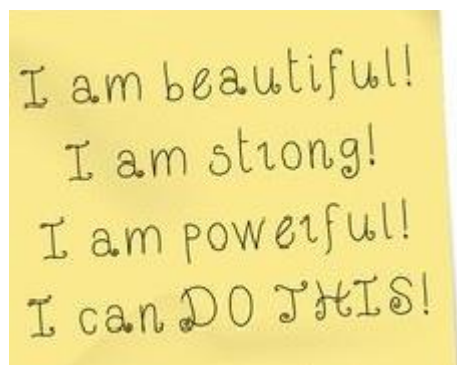 I am beautiful!
I am strong!
I am powerful!
I can DO THIS!